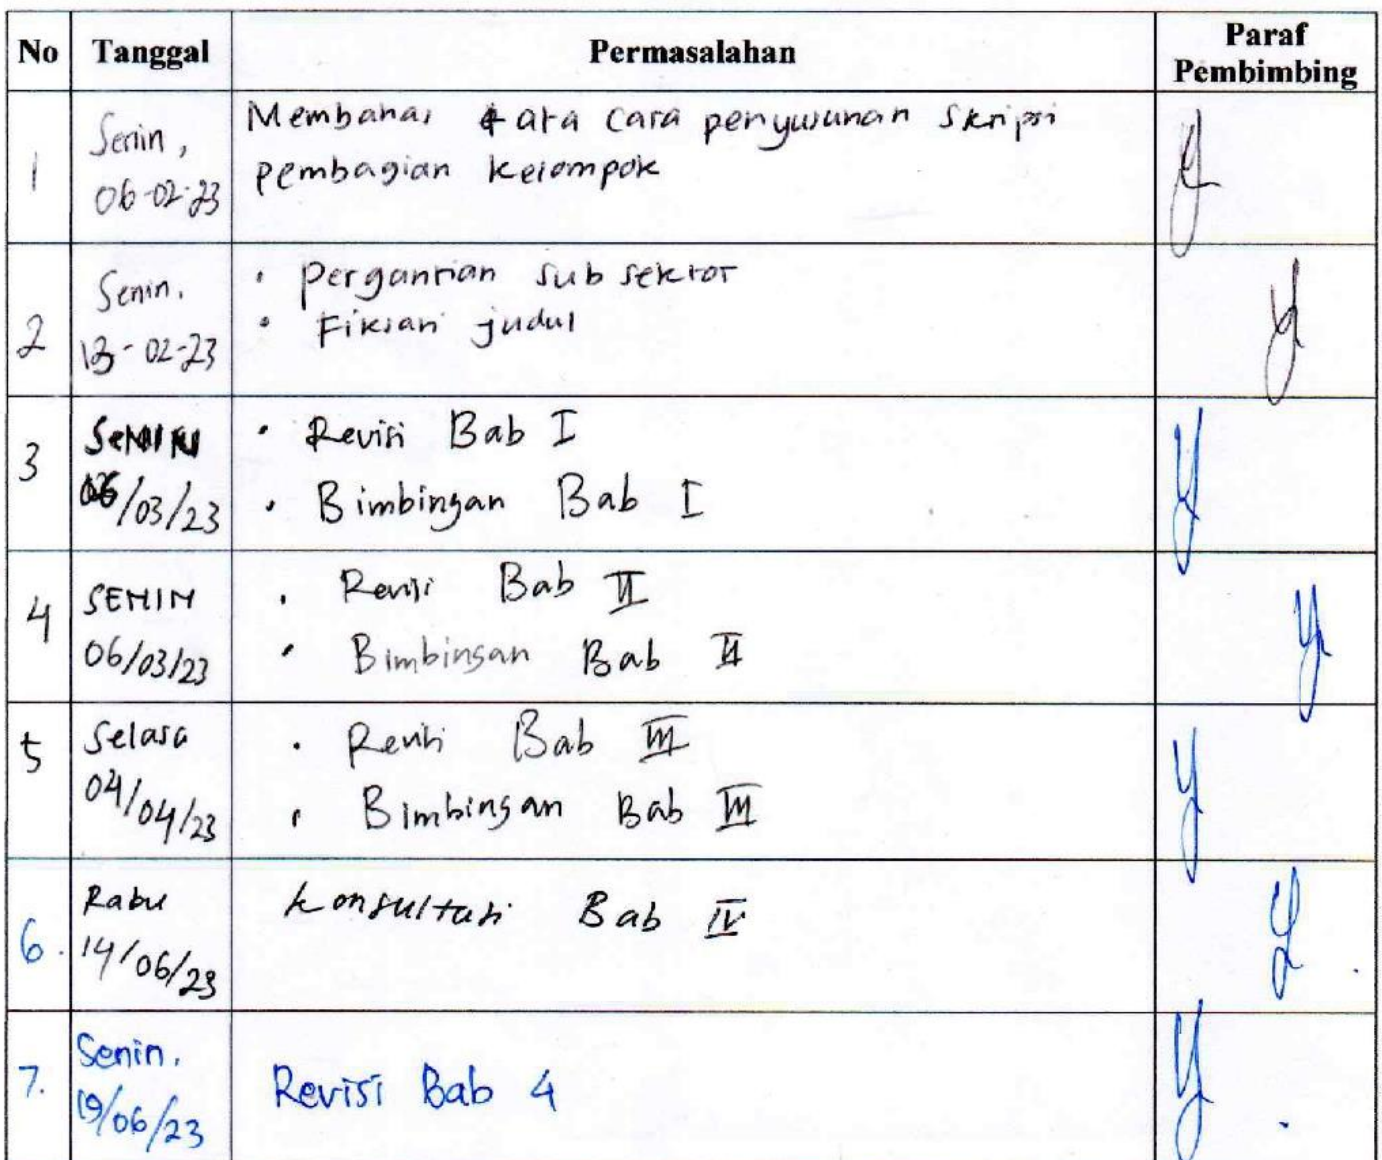 No Tanggal Permasalahan Paraf Pembimbing
1 Senin, 06-02-23 Membahas tata cara penyusunan skripsi
pembagian kelompok
2 Senin. 13-02-23 • Pergantian sub sektor
• Fiksian judul
3 SENIN 06/03/23 • Revisi Bab I
• Bimbingan Bab I
4 SENIN 06/03/23 • Revisi Bab II
• Bimbingan Bab II
5 Selasa 04/04/23 • Revisi Bab III
• Bimbingan Bab III
6. Rabu 14/06/23 Konsultasi Bab IV
7. Senin. 19/06/23 Revisi Bab 4